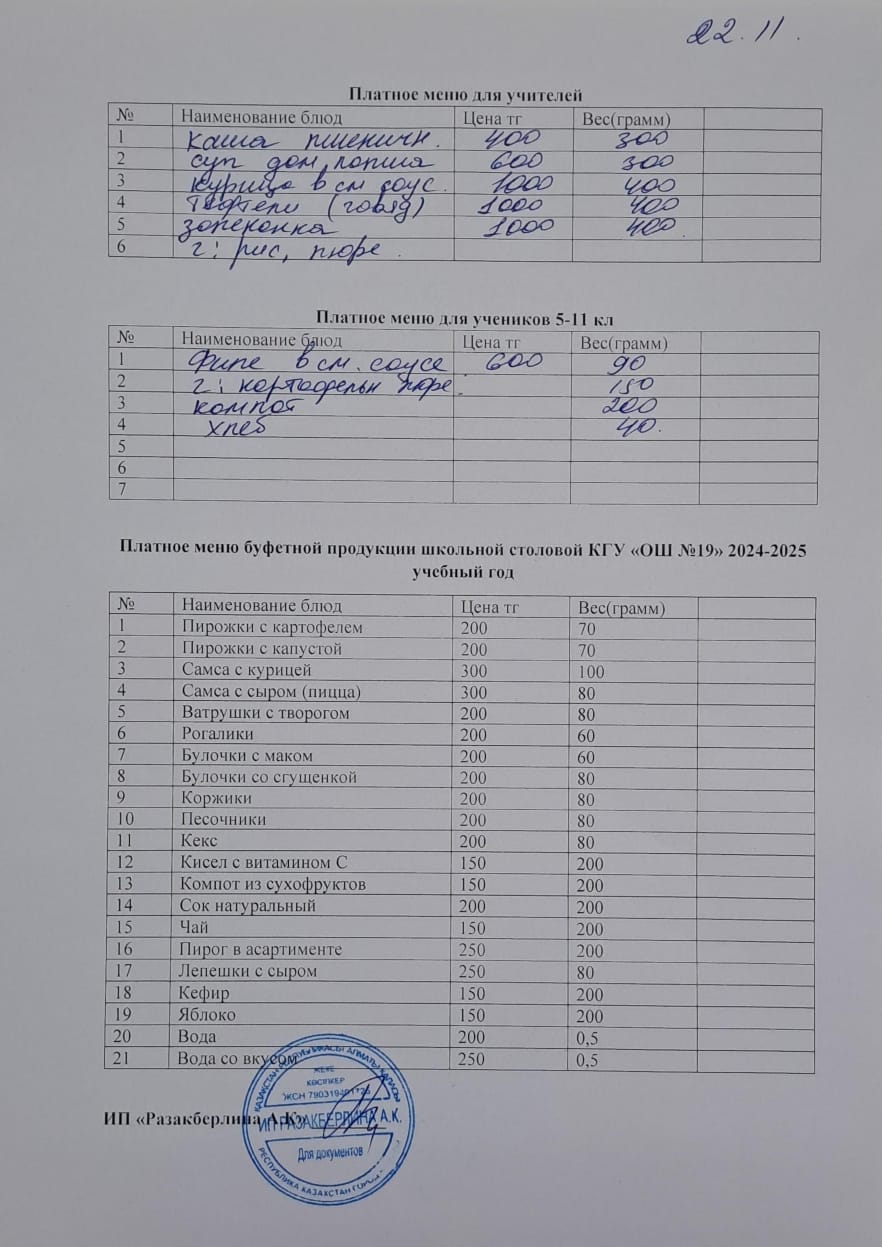 22.11.
Платное меню для учителей
№ Наименование блюд Цена тг Вес(грамм)
1 каша пшеничн. 400 300
2 суп дом лапша 600 300
3 курица в см соус. 1000 400
4 Тефтели (говяд) 1000 400
5 запеканка 1000 400.
6 г: рис, пюре.
Платное меню для учеников 5-11 кл
№ Наименование блюд Цена тг Вес(грамм)
1 Филе в см. соусе 600 90
2 г: картофельн пюре. 150
3 компот 200
4 хлеб 40.
5
6
7
Платное меню буфетной продукции школьной столовой КГУ «ОШ №19» 2024-2025
учебный год
№ Наименование блюд Цена тг Вес(грамм)
1 Пирожки с картофелем 200 70
2 Пирожки с капустой 200 70
3 Самса с курицей 300 100
4 Самса с сыром (пицца) 300 80
5 Ватрушки с творогом 200 80
6 Рогалики 200 60
7 Булочки с маком 200 60
8 Булочки со сгущенкой 200 80
9 Коржики 200 80
10 Песочники 200 80
11 Кекс 200 80
12 Кисел с витамином С 150 200
13 Компот из сухофруктов 150 200
14 Сок натуральный 200 200
15 Чай 150 200
16 Пирог в асартименте 250 200
17 Лепешки с сыром 250 80
18 Кефир 150 200
19 Яблоко 150 200
20 Вода 200 0,5
21 Вода со вкусом 250 0,5
ИП «Разакберлина А.К»
ҚАЗАҚСТАН РЕСПУБЛИКАСЫ АЛМАТЫ ҚАЛАСЫ
ЖЕКЕ
КӘСІПКЕР
ЖСН
ИП РАЗАКБЕРЛИНА А.К.
Для документов
РЕСПУБЛИКА КАЗАХСТАН ГОРОД